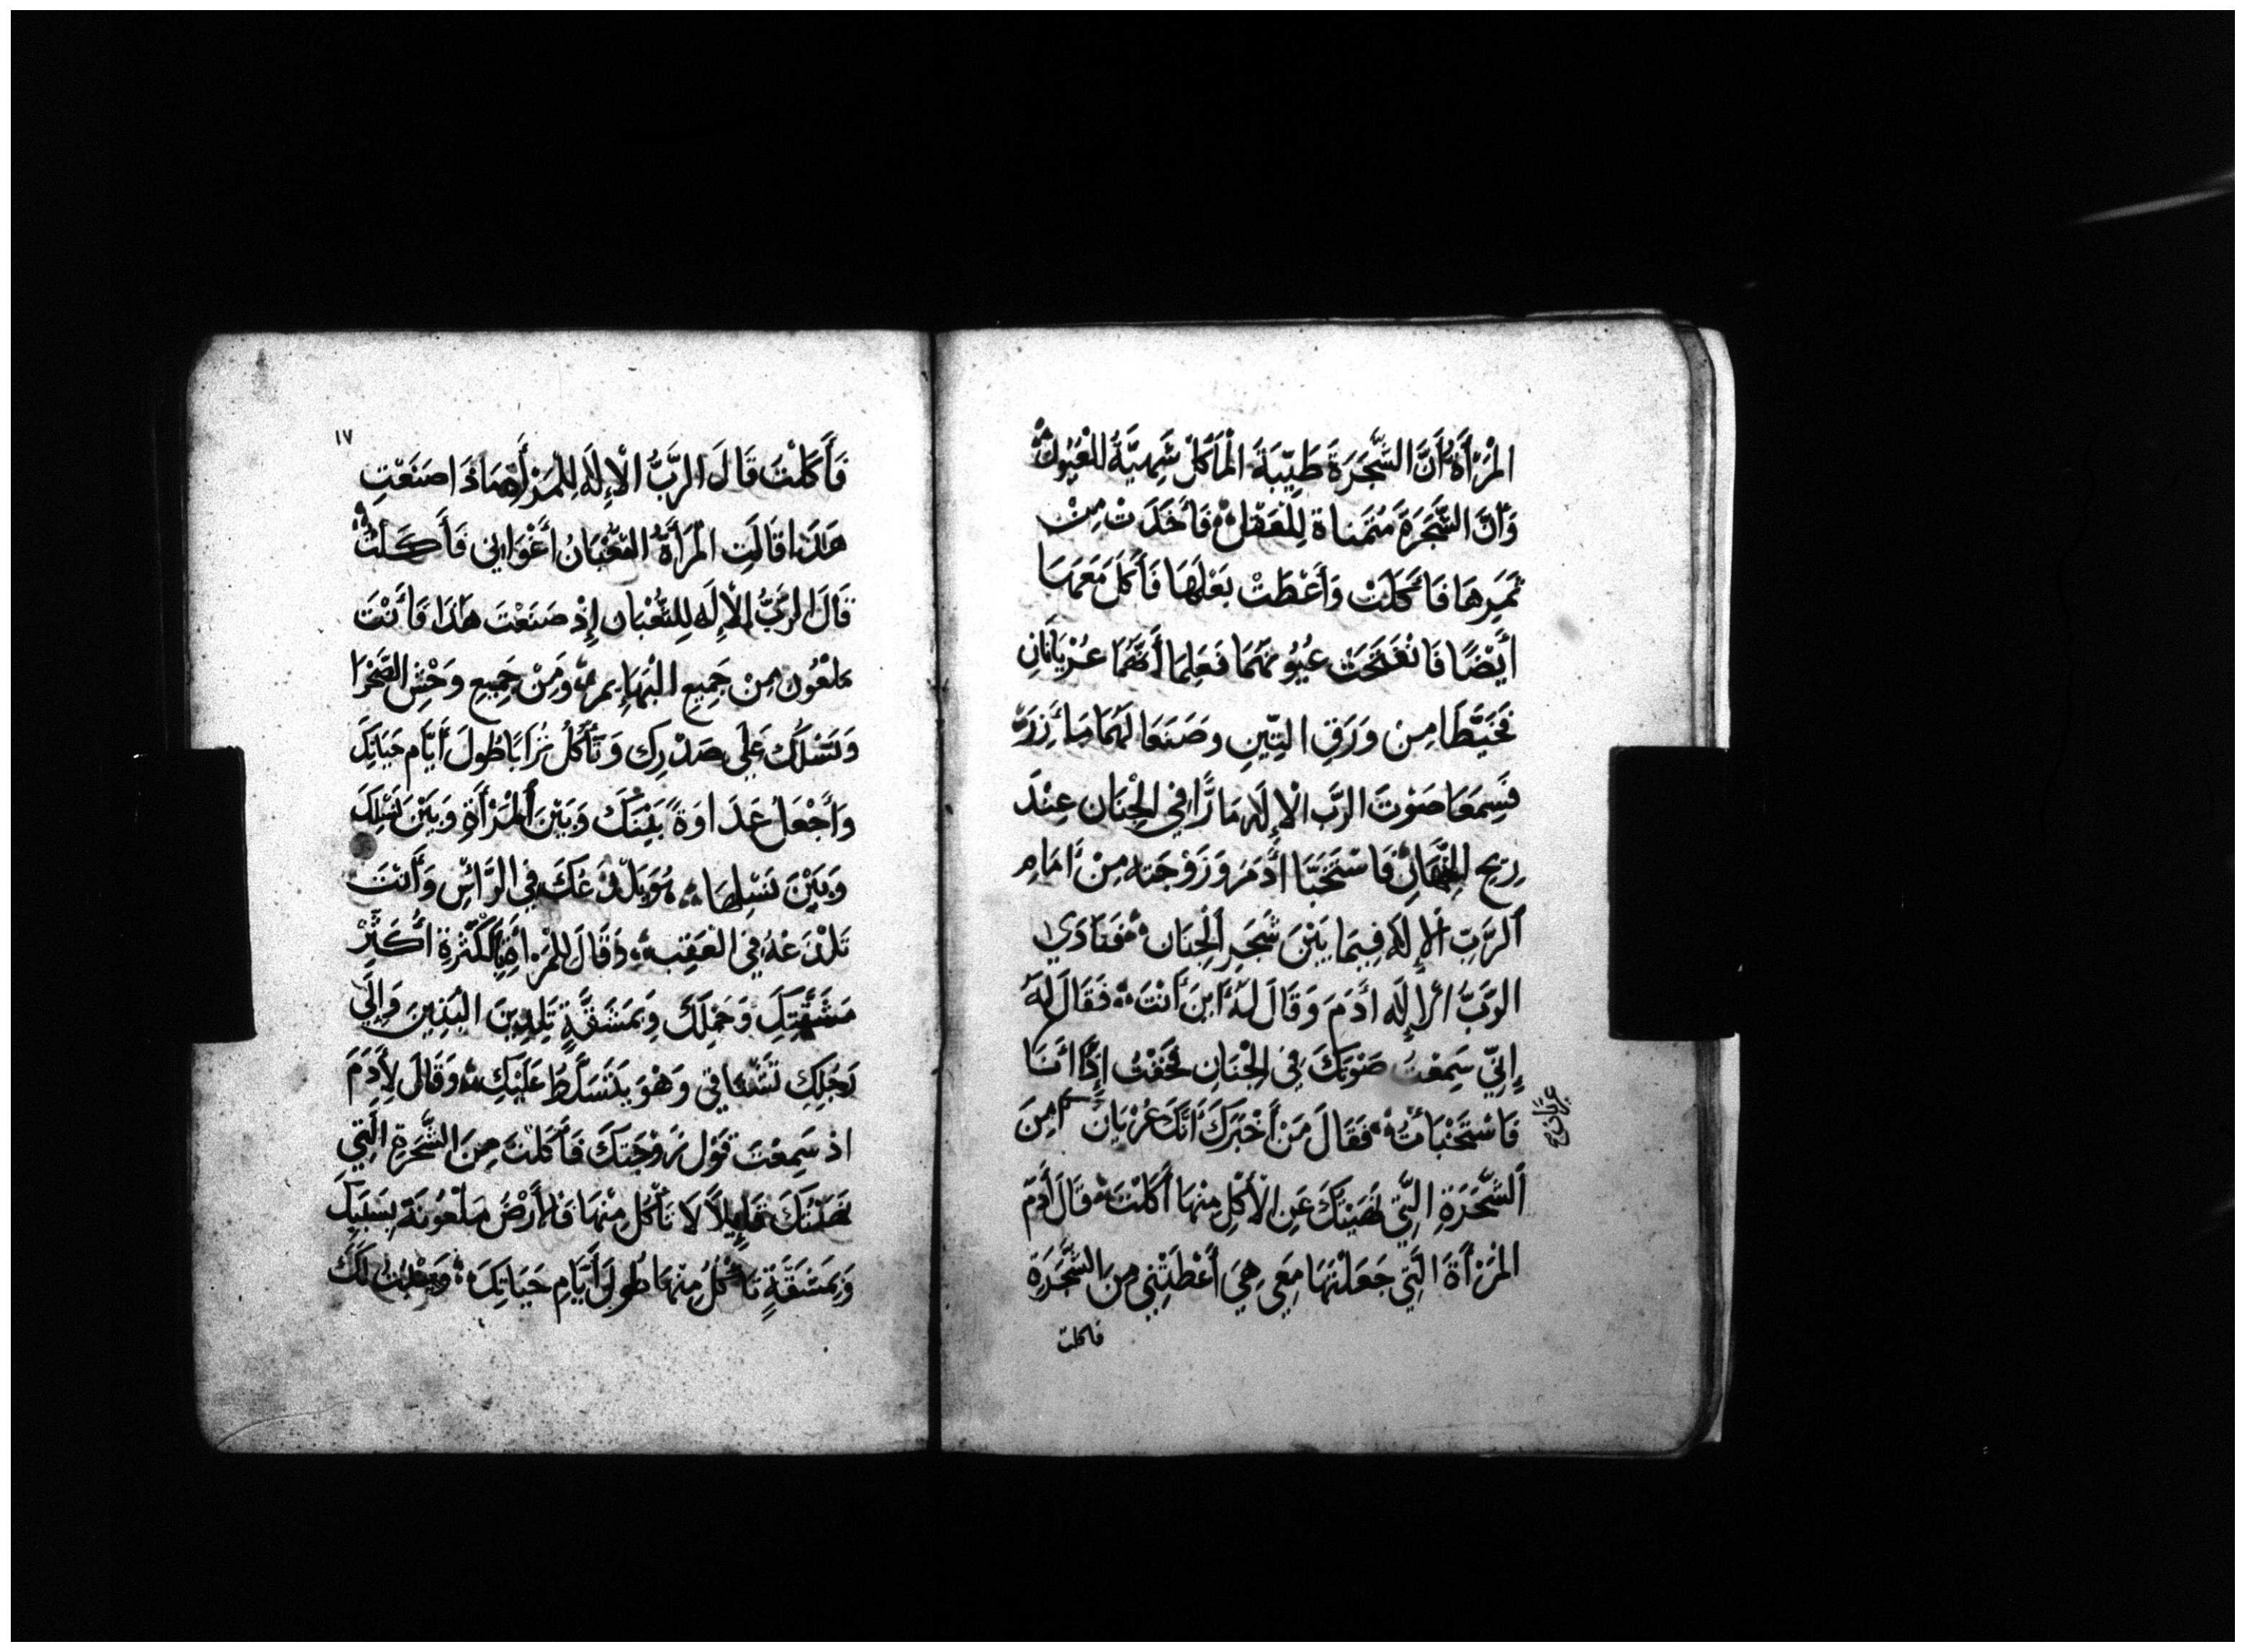 المَرْأَةُ أَنَّ الشَّجَرَةَ طَيِّبَةَ المَأْكَلْ شَهِيَّةُ لِلْعُيُونْ
وَأَنَّ الشَّجَرَةَ مُتَمَناة لِلْعَقْلْ فَأَخَذَتْ مِنْ
ثَمَرِهَا فَأَكَلَتْ وَأَعْطَتْ بَعْلَهَا فَأَكَلَ مَعَهَا
أَيْضًا فَانْفَتَحَتْ عُيُونَهُمَا فَعَلِمَا أَنَّهُمَا عُرْيَانَانِ
فَخَيَّطَا مِنْ وَرَقِ التِّينِ وصَنَعَا لَهُمَا مَأَزِرَ
فَسِمَعَا صَوْتَ الرَّبِ الْإِلَه مَارًّا فِي الجِنَان عِنْدَ
رِيحِ النَّهَارِ فَاسْتَخَبَّا أَدَمَ وَزَوْجَته مِنْ أَمَامِ
اَلرَّبِّ اَلإِلَهْ فِيمَا بَيْنَ شَجَرِ اَلْجِنَان فَنَادَي
الرَّبُّ الْإِلَه أَدَمَ وَقَالَ لَهُ أَينَ أَنْتَ فَقَالَ لَهُ
إِنِّي سَمِعْتُ صَوْتَكَ فِي الجْنَانِ فَخِفْتُ إِذَّا أَنَا
فَاسْتَخْبَأتُ فَقَالَ مَنْ أَخْبَرَكَ أَنَّكَ عُرْيَانً أَمِنَ
عريان صح
اَلشَّجَرَةِ الَّتِي نَهَيْتَكَ عَنِ الأَكْلِ مِنْهَا أَكَلْتَ قَالَ أَدَمَ
المَرْأَةَ الَّتِي جَعَلْتَهَا مَعِي هِيَ أَعْطَتْنِي مِنَ الشَّجَرَةِ
فاكلت
١٧
فَأَكَلْتَ قَالَ الرَّبُّ الْإِلَهَ لِلْمَرْأَةِ مَاذَا صَنَعْتِ
هَذَا قَالَتِ المَرْأَةُ الثُّعْبَانُ أَغْوَانِي فَأَكَلْتُ
قَالَ الرَّبُّ الْإِلَه لِلثُّعْبَان إِذْ صَنَعْتَ هَذَا فَأَنْتَ
مَلْعُون مِنْ جَمِيعِ البَهَايِم وَمِنْ جَمِيعِ وَحْشِ الصَّحْرَا
وَتَسْلُكْ عَلَى صَدْرِك وَتَأكُلُ تُرَابًا طُولَ أَيَّام حَيَاتِكَ
وَاَجْعَلُ عَدَاوَةً بَيْنَكَ وَبَيْنَ اَلْمَرْأَةِ وَبَيْنَ نَسْلِكَ
وَبَيْنَ نَسْلِهَا هُوَ يَلْدَغكَ فِي الرَّأْسِ وَأَنْتَ
تَلْدَغهُ فِي الْعَقِبِ وَقَالَ لِلْمَرْأَةِ بِاَلْكَثْرَةِ أُكَثِّرْ
مَشَقَّتِكِ وَحَمْلِكَ وَبمَشَقَّةٍ تَلِدِينَ البَنِينَ وَإِلَى
رَجُلِكِ تَشْتَاقِي وَهْوَ يَتَسَلَّطَ عَلَيْكِ وَقَالَ لِأَدَمَ
اذ سَمِعْتَ قَوْل زَوْجَتَكَ فَأَكَلْتَ مِنَ الشَّجَرَةِ الَّتِي
نَهَيْتُكَ قَايِلاً لَا تَأْكُل مِنْهَا فَالأَرْضُ مَلْعُونَة بِسَبَبِكَ
وَبِمَشَقَّةٍ تَأْكُلُ مِنْهَا طُولَ أَيَّامِ حَيَاتِكَ لَكَ